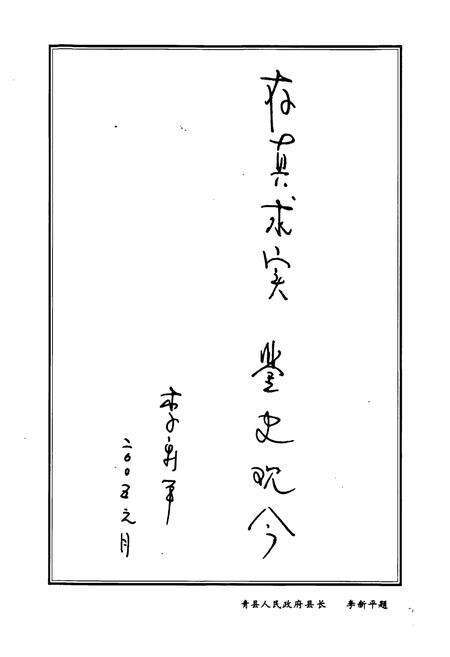 存真求实 鉴史观今
李新平
二〇〇五元月
青县人民政府县长 李新平题